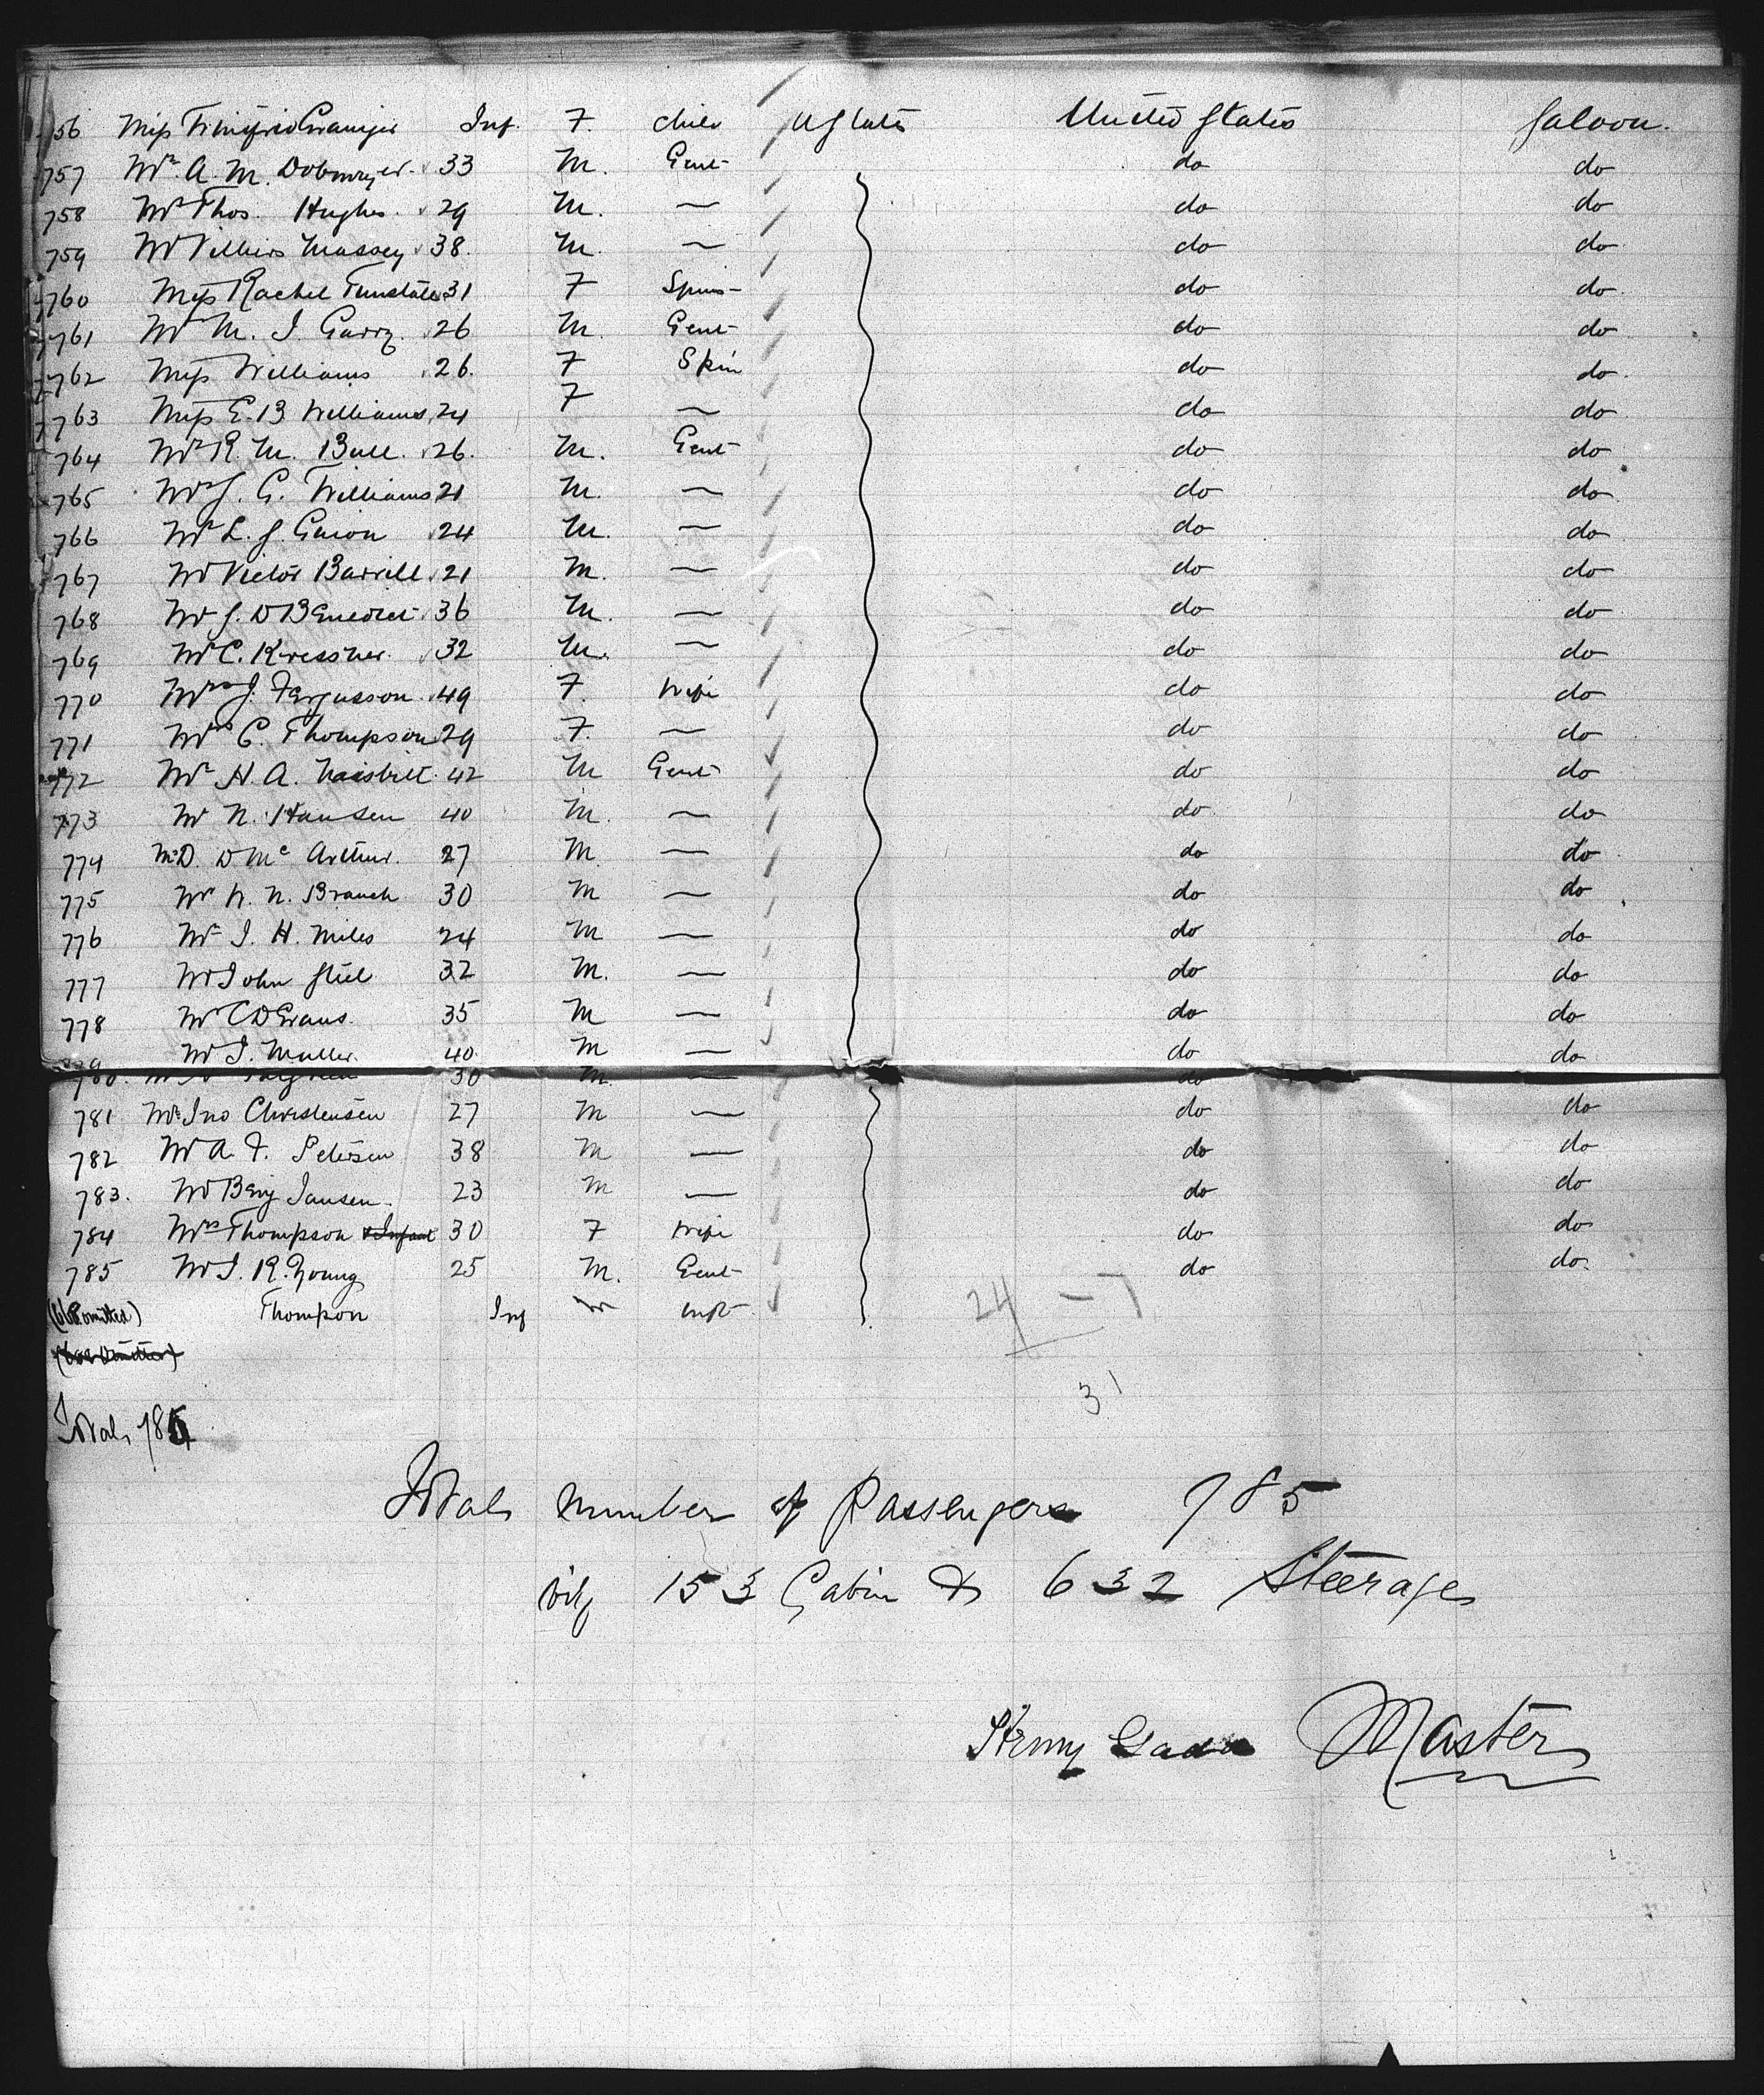 756 Miss Winifred Inf. F. Child U States United States Saloon.
757 Mr. A. M. Dobmayer. 33 M. Gent do do
758 Mr Thos. Hughes. 29 M. — do do
759 Mr Villiers Massey 38. M. — do do
760 Miss Rachel 31 F Spins- do do
761 Mr M. J. Garry. 26 M. Gent do do
762 Miss Williams 26. F Spin do do
763 Miss E. B Williams 24 F — do do
764 Mr R. M. Bull. 26. M. Gent do do
765 Mr J. G. Williams 21 M. — do do
766 Mr L. J. Guion 24 M. — do do
767 Mr Victor Barrill 21 M. — do do
768 Mr J. D Benedict 36 M. — do do
769 Mr C. Kressner. 32 M. — do do
770 Mrs J. Fergusson. 49 F. Wife do do
771 Mrs C. Thompson 29 F. — do do
772 Mr H. A. Naisbitt. 42 M Gent do do
773 Mr N. Hansen 40 M. — do do
774 Mr D. D Mc Arthur. 27 M. — do do
775 Mr W. N. Branch 30 M — do do
776 Mr J. H. Miles 24 M — do do
777 Mr John Stiel 32 M. — do do
778 Mr C D Evans. 35 M — do do
779 Mr J. Muller. 40 M — do do
780. 30 M. — do
781 Mr Jno Christensen 27 M — do do
782 Mr A. F. Petersen 38 M — do do
783. Mr Benj Jansen. 23 M — do do
784 Mrs Thompson & Infant 30 F Wife do do
785 Mr J. R. Young 25 M. Gent do do.
omitted) Thompson Inf inft
24 – 7
31
Total 785
Total Number of Passengers 785
viz 153 Cabin & 632 Steerage
Henry Master